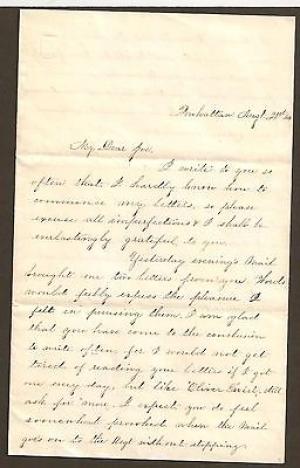 Augt. 22nd
My Dear Joe.
I write to you so
often that I hardly know how to
commence my letters, so please
excuse all imperfections & I shall be
everlastingly grateful to you.
Yesterday evening's Mail
brought me two letters from you Words
would feebly express the pleasure I
felt in perusing them. I am glad
that you have come to the conclusion
to write often, for I would not get
tired of reading your letters if I got
one every day, but like "Oliver Twist, still
ask for more. I expect you do feel
somewhat provoked when the Mail
goes on to the Regt without stopping